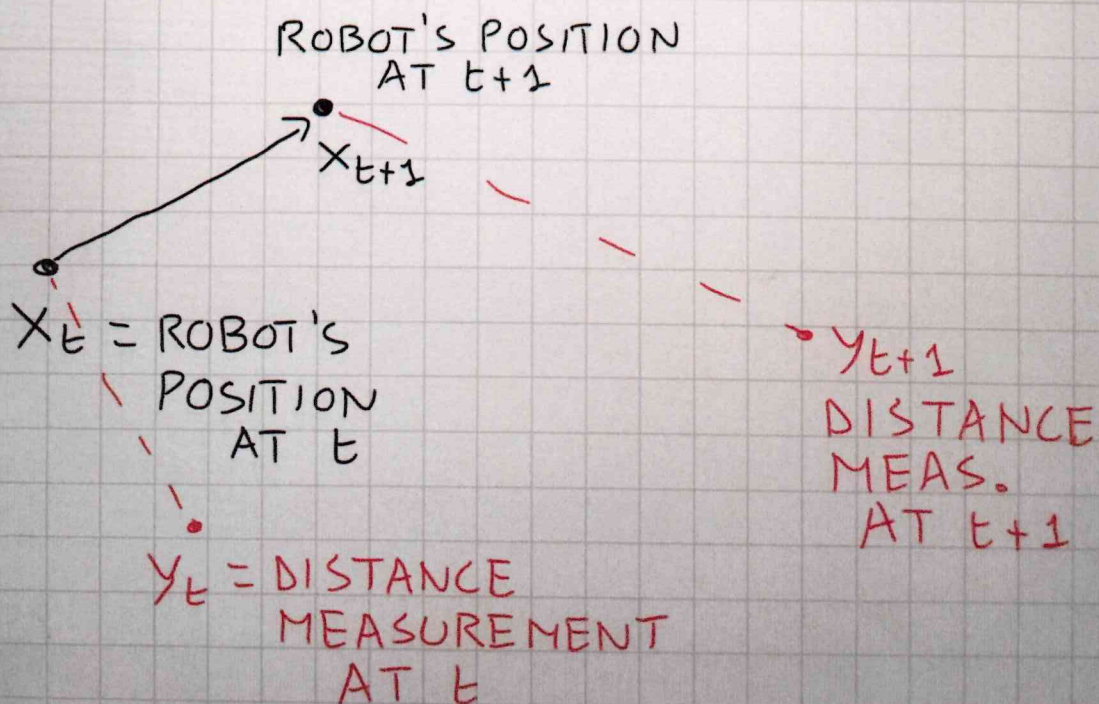 ROBOT'S POSITION
AT t+1
X t+1
X t = ROBOT'S
POSITION
AT t
y t+1
DISTANCE
MEAS.
AT t+1
y t = DISTANCE
MEASUREMENT
AT t